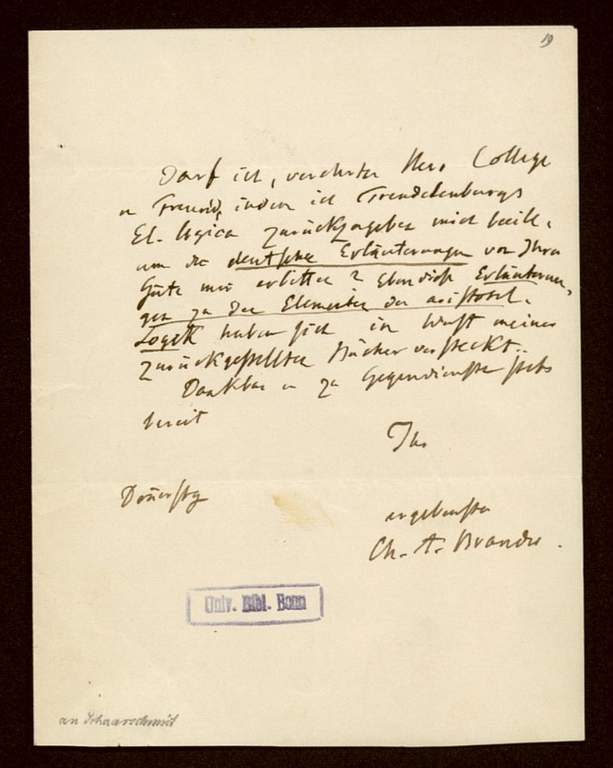 19
Darf ich, verehrter Herr College
u Freund, indem ich Trendelenburgs
El. logica zurückzugeben mich beeile,
um die deutschen Erläuterungen von Ihrer
Güte mir erbitten? Eben diese Erläuterun-
gen zu den Elementen der aristotel.
Logik haben sich im Wust meiner
zurückgestellten Bücher versteckt.
Dankbar u zu Gegendiensten stets
bereit
Ihr
Donerstg
ergebenster
Ch. A. Brandis.
Univ. Bibl. Bonn
an Schaarschmidt